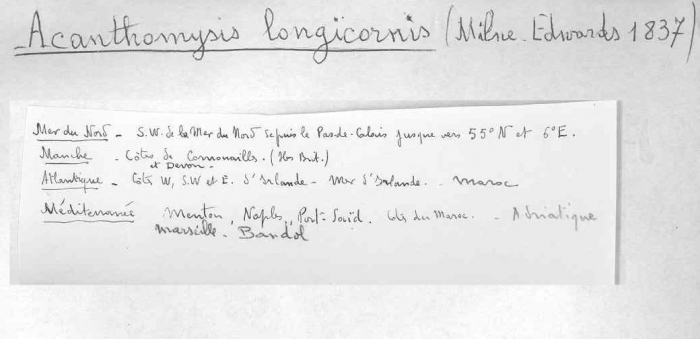 Acanthomysis longicornis (Milne-Edwards 1837)
Mer du Nord - S.W. de la Mer du Nord depuis le Pas-de-Calais jusque vers 55° N et 6° E.
Manche - Côtes de Cornouailles. (Iles Brit.)
et Devon -
Atlantique - Côtes W, S.W et E. d'Irlande - Mer d'Irlande. - Maroc
Méditerranée Menton, Naples, Port-Saïd. Côtes du Maroc. - Adriatique
Marseille - Bandol